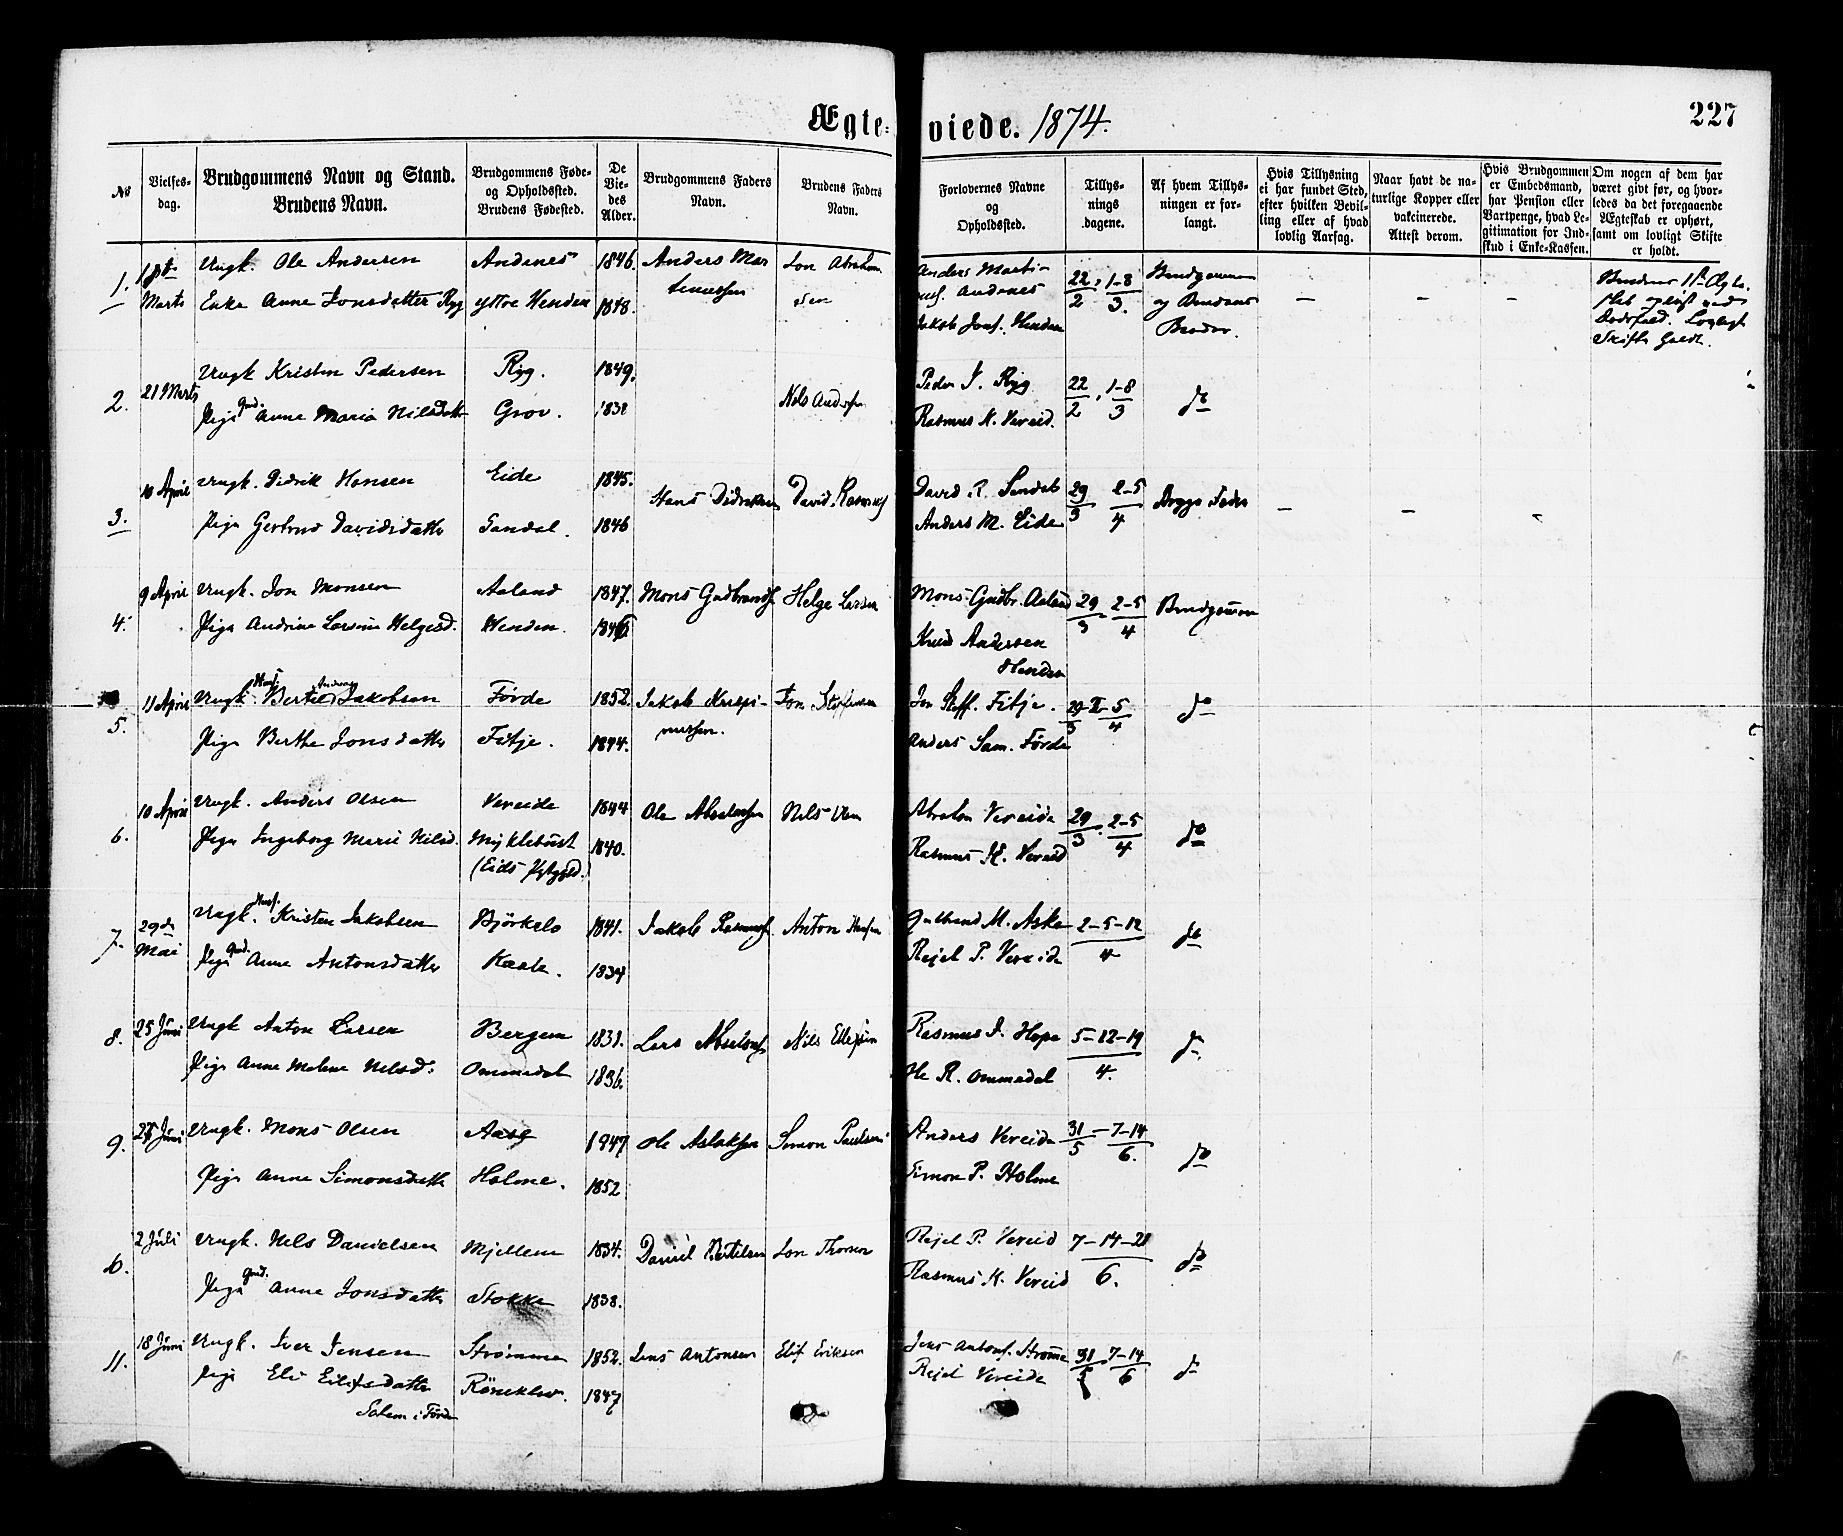 Ægte- viede. 1874.
227
No
Vielses-dag.
Brudgommens Navn og Stand.
Brudens Navn.
Brudgommens Føde- og Opholdssted.
Brudens Fødested.
De Viedes Alder.
Brudgommens Faders Navn.
Brudens Faders Navn.
Forlovernes Navne og Opholdssted.
Tillysningsdagene.
Af hvem Tillysningen er forlangt.
Hvis Tillysning ei har fundet Sted, efter hvilken Bevilling eller af hvad lovlig Aarsag.
Naar havt de naturlige Kopper eller vakcinerede. Attest derom.
Hvis Brudgommen er Embedsmand, har Pension eller Vartpenge, hvad Legitimation for Indskud i Enke-Kassen.
Om nogen af dem har været givt før, og hvorledes da det foregaaende Ægteskab er ophørt, samt om lovligt Skifte er holdt.
1. Marts Ungk. Ole Andersen Andenes 1846. Anders Martinussen Jon Abraham sen Anders Martinus. Andenes 22/2, 1-8/3. Brudgommen og Brudens Broder. — — —
Enke Anne Jonsdatter Ryg ytre Henden 1848. Jakob Jons. Henden
Brudens 1ste Ægteskab opløst ved Dødsfald. Lovligt Skifte holdt.
2. 21 Marts Ungk Kristen Pedersen Ryg. 1849. Peder J. Ryg 22/2, 1-8/3 do
Pige Gmd. Anne Maria Nilsdatt Grov. 1838 Nils Anders Rasmus K. Vereid.
3. 10 April Ungk. Didrik Hansen Eide 1845. Hans Didriksen David Rasmus David R. Sandal 29/3 2-5/4 Begges Fædre — — —
Pige Gertrud Davidsdatter Sandal. 1846 Anders M. Eide
4. 9 April Ungk. Jon Monsen Aaland 1847. Mons Gudbrands Helge Larsen Mons Gudbr. Aaland 29/3 2-5/4 Brudgommen
Pige Andrine Larsine Helgesd. Henden. 1846 Knud Andersen Henden
5. 11 April Ungk. Bertel Jakobsen Førde 1852. Jakob Krispinussen. Jon Steffensen Jon Steff. Fitje. 29/3-2-5/4 do
Pige Berthe Jonsdatter Fitje. 1844. Anders Sam. Førde
6. 10 April Ungk. Anders Olsen Vereide 1844 Ole Absalonsen Nils Absalon Vereide 29/3. 2-5/4 do
Pige Ingeborg Marie Nilsd. Myklebust 1840. Rasmus K. Vereid
(Eids Pgjæld.)
7. 29de Mai Ungk. Kristen Jakobsen Bjørkelo 1841. Jakob Rasmus Anton Hansen Gulbrand M. Aske 2-5-12/4 do
Pige Gmd. Anne Antonsdatter 1834 Rejel P. Vereide
8. 25 Juni Ungk Anton Larsen Bergem 1838. Lars Absalons Nils Ellefsen Rasmus J. Hope 5-12-19/4. do
Pige Anne Malene Nilsd. Ommedal 1836. Ole R. Ommedal
9. 27 Juni Ungk. Mons Olsen 1847 Ole Aslaksen Simon Paulsen Anders Vereide 31/5-7-14/6. do
Pige Anne Simonsdatter Holme. 1852 Simon P. Holme
2 Juli Ungk. Nils Danielsen Mjellem 1834. Daniel Bertelsen Jon Thomsen Rejel P. Vereid 7-14-21/6. do
Pige Gmd. Anne Jonsdatter Stokke 1838. Rasmus K. Vereid
11. 18 Juni Ungk. Iver Jensen Strømme 1852. Jens Antonsen Elif Eriksen Jens Antons. Strømme 31/5 7-14/6 do
Pige Eli Eilifsdatter 1847 Rejel Vereide
Solem i Førde